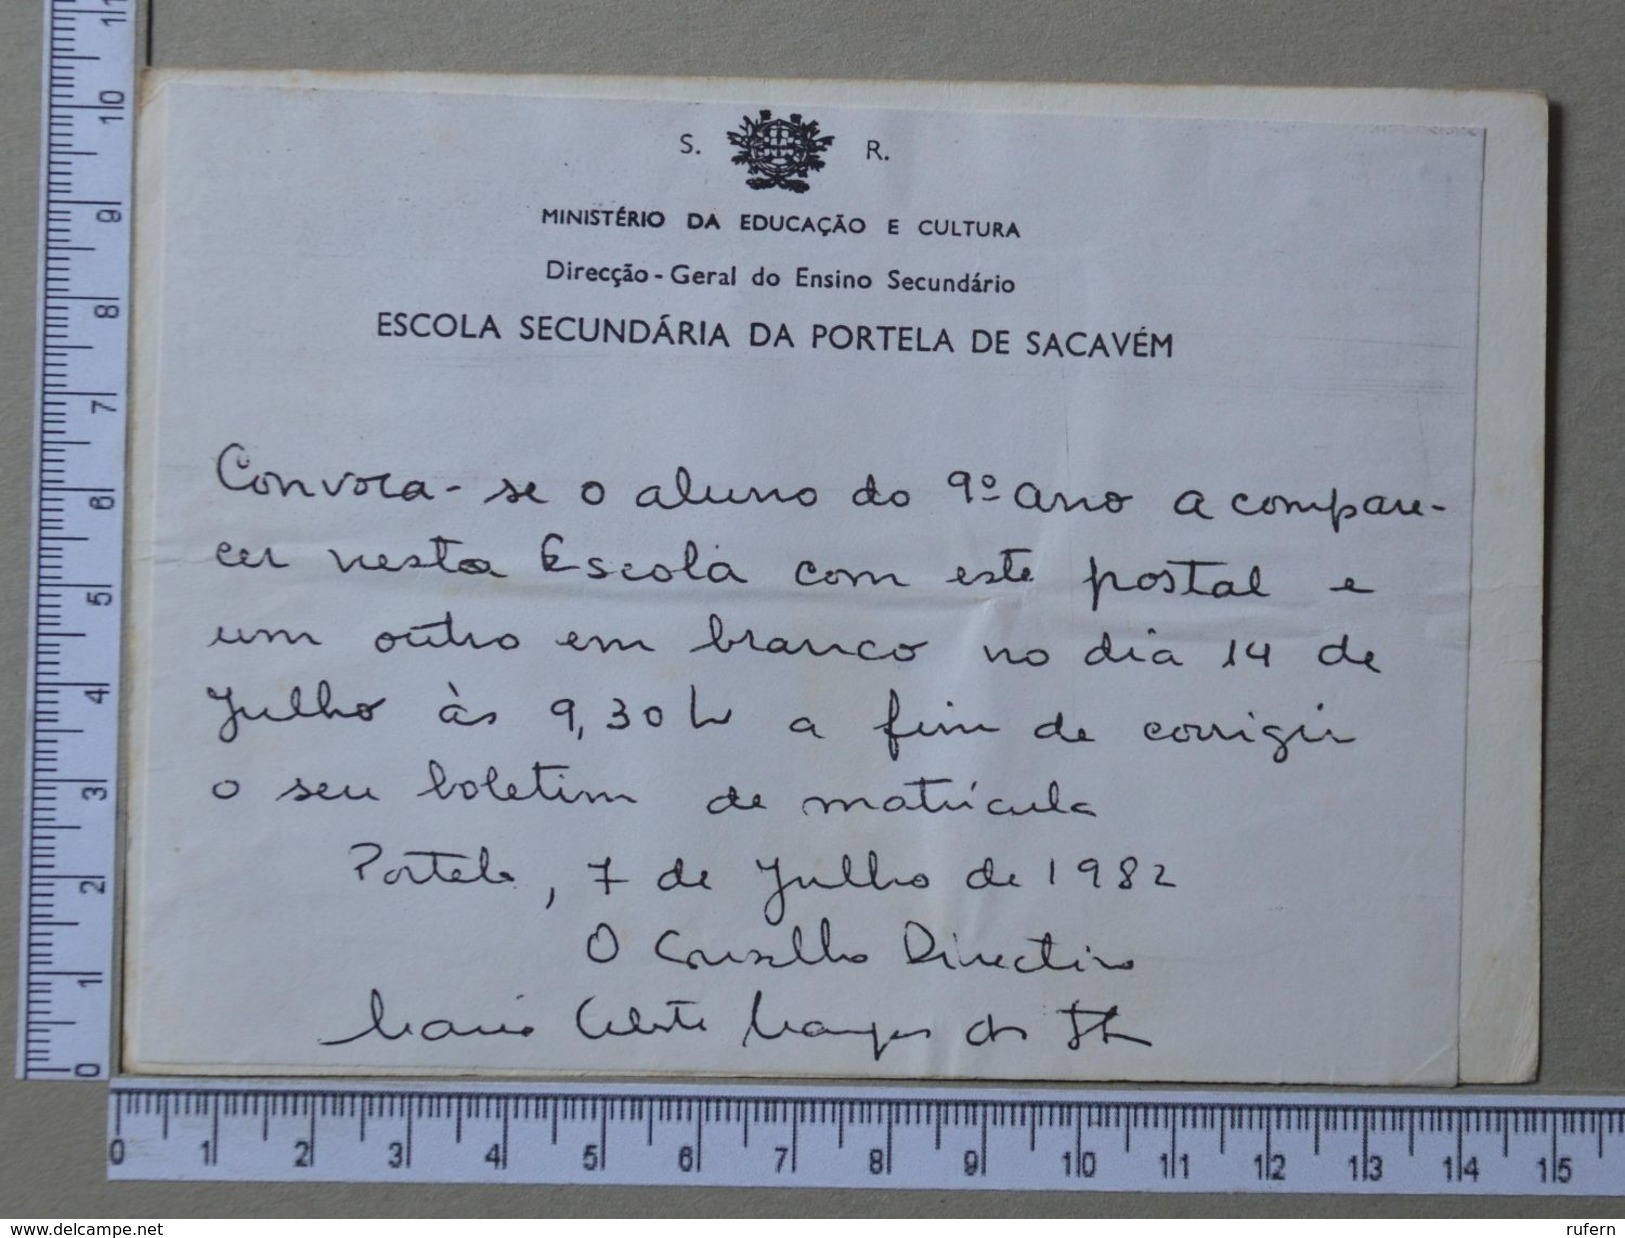 S. R.
MINISTÉRIO DA EDUCAÇÃO E CULTURA
Direcção-Geral do Ensino Secundário
ESCOLA SECUNDÁRIA DA PORTELA DE SACAVÉM
Convoca-se o aluno do 9º ano a compare-
cer nesta Escola com este postal e
um outro em branco no dia 14 de
Julho às 9,30 h a fim de corrigir
o seu boletim de matrícula
Portela, 7 de Julho de 1982
O Conselho Directivo
Maria Celeste
0 1 2 3 4 5 6 7 8 9 10 11
0 1 2 3 4 5 6 7 8 9 10 11 12 13 14 15
www.delcampe.net
rufern